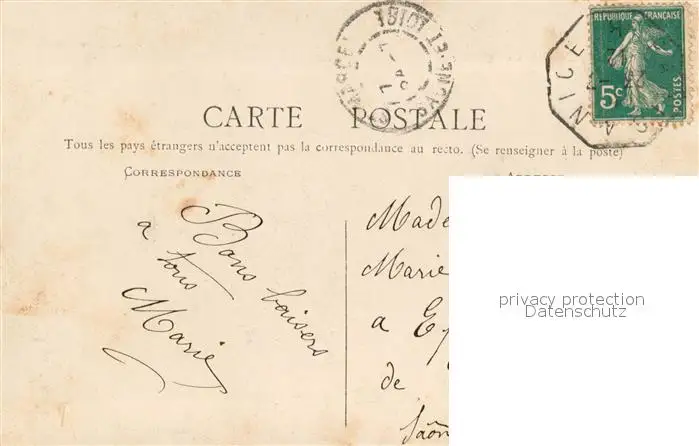 RÉPUBLIQUE FRANÇAISE
5c
POSTES
NICE A
CARTE POSTALE
Tous les pays étrangers n'acceptent pas la correspondance au recto. (Se renseigner à la poste)
CORRESPONDANCE
Bons baisers
a tous
Marie
Made
Marie
a
de
Saôn
privacy protection
Datenschutz